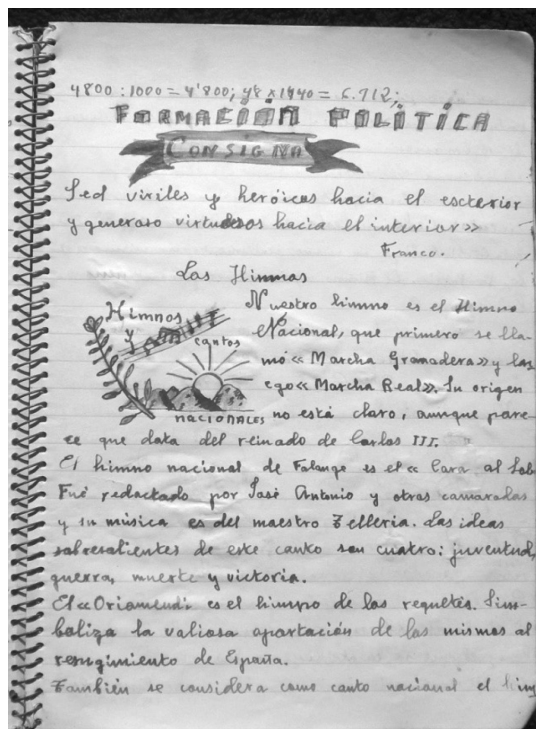 4800 : 1000 = 4'800; 4'8 x 1440 = 6.912;
FORMACIÓN POLÍTICA
CONSIGNA
Sed viriles y heróicos hacia el escterior
y generoso virtudesos hacia el interior»
Franco.
Los Himnos
Himnos
y
cantos
nacionales
Nuestro himno es el Himno
Nacional, que primero se lla-
mó «Marcha Granadera» y lu
ego «Marcha Real». Su origen
no está claro, aunque pare-
ce que data del reinado de Carlos III.
El himno nacional de Falange es el «Cara al Sol
Fué redactado por José Antonio y otros camaradas
y su música es del maestro Telleria. Las ideas
sobresalientes de este canto son cuatro: juventud,
guerra, muerte y victoria.
El «Oriamendi» es el himno de los requetés. Sim-
boliza la valiosa aportación de los mismos al
resurgimiento de España.
También se considera como canto nacional el him